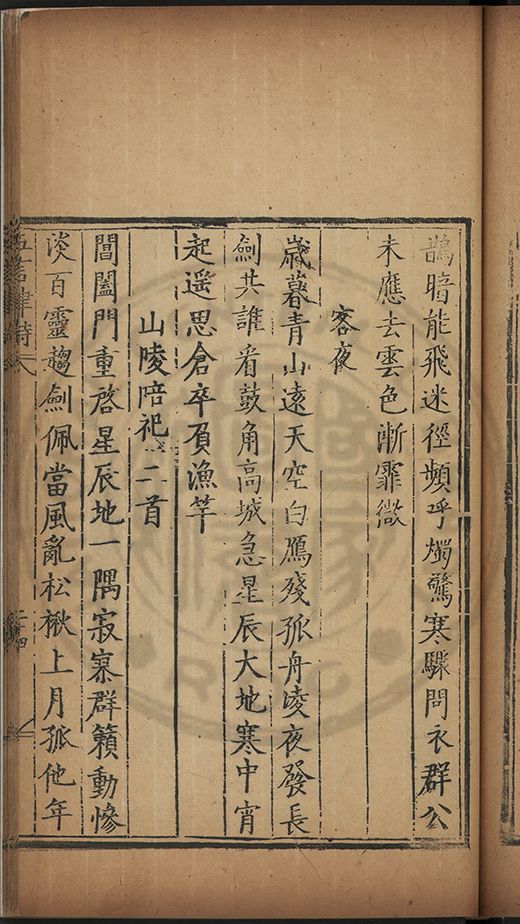 鵲暗能飛迷徑頻呼燭驚寒驟問衣群公
未應去雲色漸霏微
客夜
歲暮青山遠天空白鴈殘孤舟凌夜發長
劍共誰看鼓角高城急星辰大地寒中宵
起遥思倉卒負漁竿
山陵陪祀二首
閶闔門重啓星辰地一隅寂寞群籟動慘
淡百靈趨劍佩當風亂松楸上月孤他年
五言律詩八
二十四